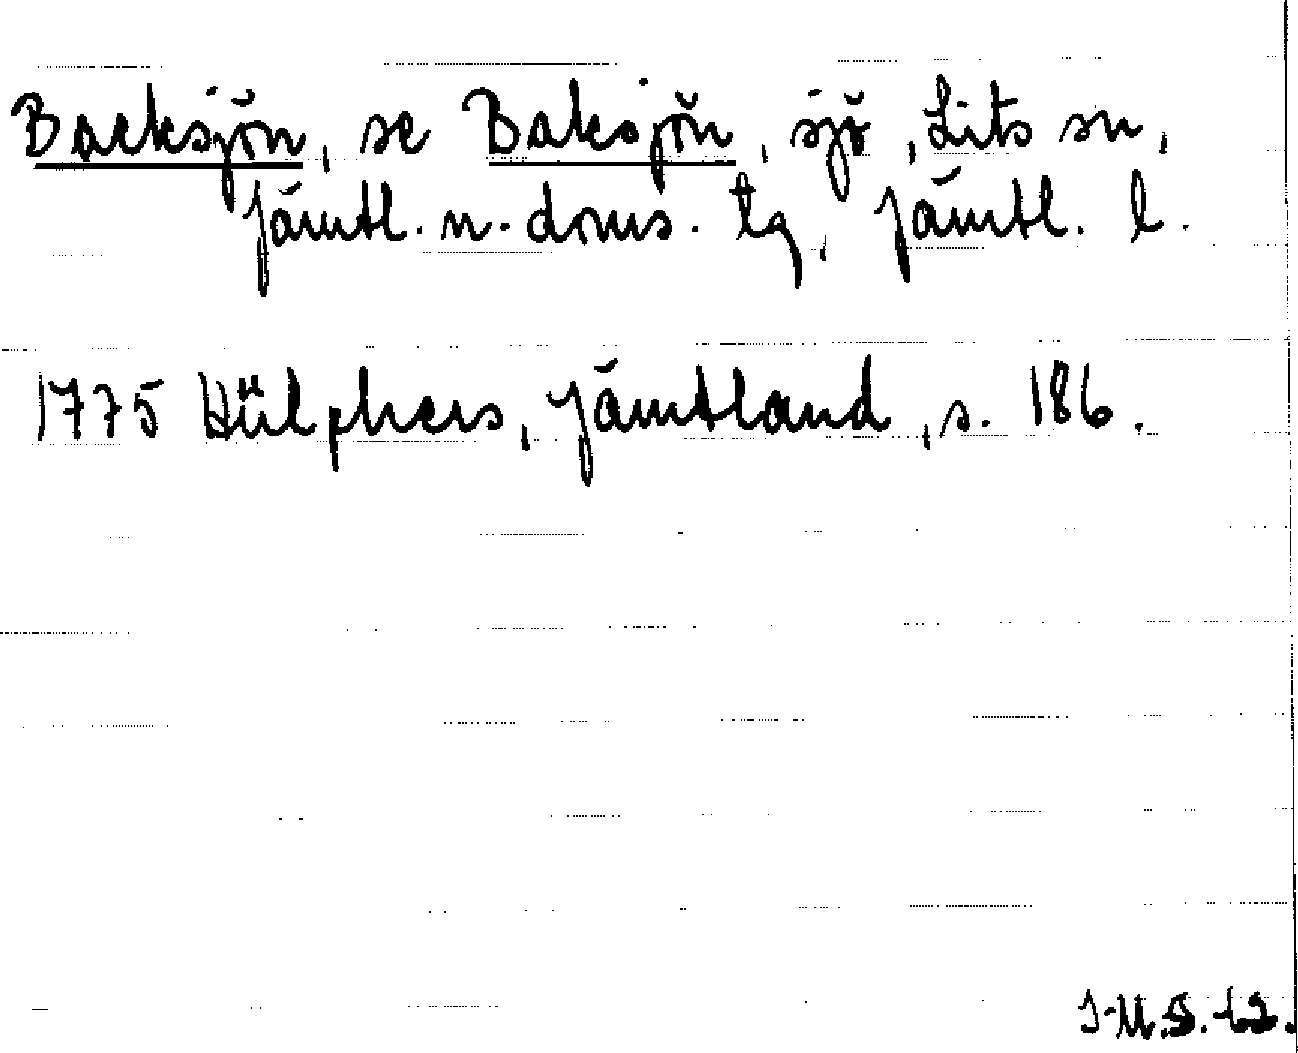 Backsjön, se Baksjön, sjö, Lits sn,
Jämtl. n. doms. tg, Jämtl. l.
1775 Hülphers, Jämtland, s. 186.
I-M.S. 62.